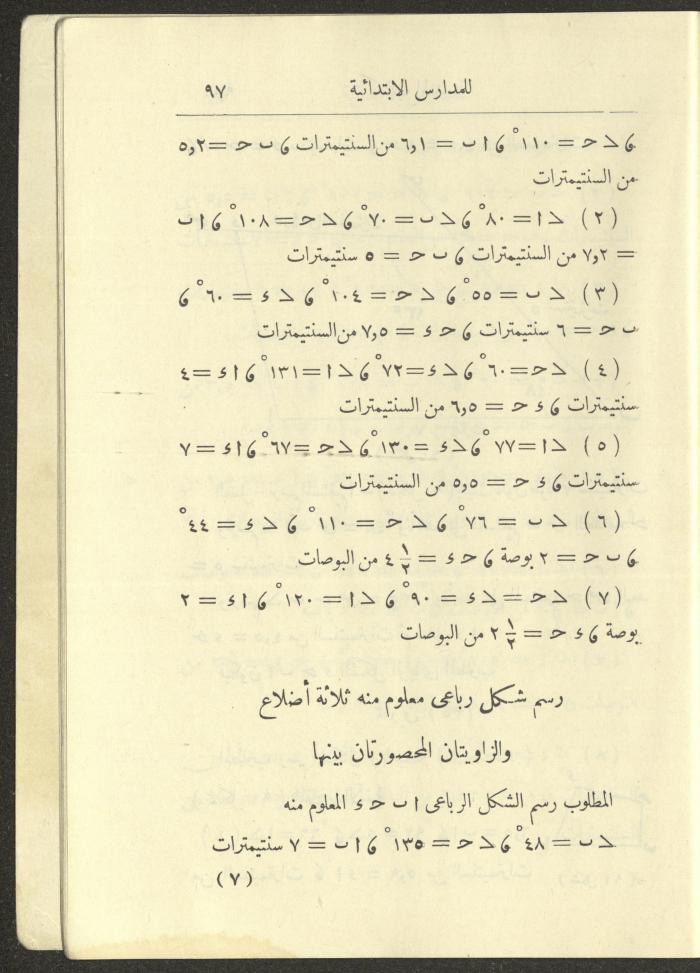 للمدارس الابتدائية ٩٧
𞺰 ∠ حـ = ١١٠° 𞺰 ا ب = ٦٫١ من السنتيمترات 𞺰 ب حـ = ٥٫٢
من السنتيمترات
(٢) ∠ ا = ٨٠° 𞺰 ∠ ب = ٧٠° 𞺰 ∠ حـ = ١٠٨° 𞺰 ا ب
= ٧٫٢ من السنتيمترات 𞺰 ب حـ = ٥ سنتيمترات
(٣) ∠ ب = ٥٥° 𞺰 ∠ حـ = ١٠٤° 𞺰 ∠ ء = ٦٠° 𞺰
ب حـ = ٦ سنتيمترات 𞺰 حـ ء = ٧٫٥ من السنتيمترات
(٤) ∠ حـ = ٦٠° 𞺰 ∠ ء = ٧٢° 𞺰 ∠ ا = ١٣١° 𞺰 ا ء = ٤
سنتيمترات 𞺰 ء حـ = ٦٫٥ من السنتيمترات
(٥) ∠ ا = ٧٧° 𞺰 ∠ ء = ١٣٠° 𞺰 ∠ حـ = ٦٧° 𞺰 ا ء = ٧
سنتيمترات 𞺰 ء حـ = ٥٫٥ من السنتيمترات
(٦) ∠ ب = ٧٦° 𞺰 ∠ حـ = ١١٠° 𞺰 ∠ ء = ٤٤°
𞺰 ب حـ = ٢ بوصة 𞺰 حـ ء = ٤ ١/٢ من البوصات
(٧) ∠ حـ = ∠ ء = ٩٠° 𞺰 ∠ ا = ١٢٠° 𞺰 ا ء = ٢
بوصة 𞺰 ء حـ = ٢ ١/٢ من البوصات
رسم شكل رباعى معلوم منه ثلاثة أضلاع
والزاويتان المحصورتان بينها
المطلوب رسم الشكل الرباعى ا ب حـ ء المعلوم منه
∠ ب = ٤٨° 𞺰 ∠ حـ = ١٣٥° 𞺰 ا ب = ٧ سنتيمترات
(٧)